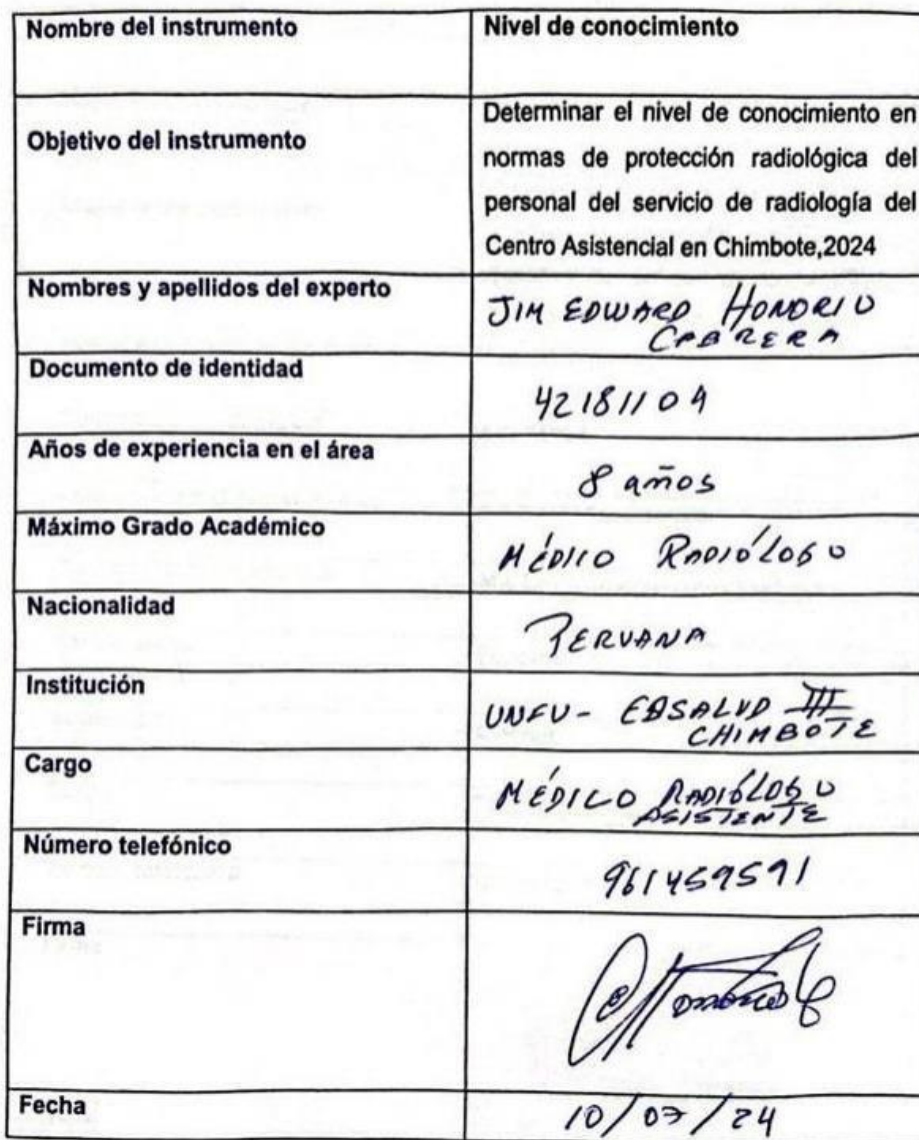 Nombre del instrumento
Nivel de conocimiento
Objetivo del instrumento
Determinar el nivel de conocimiento en
normas de protección radiológica del
personal del servicio de radiología del
Centro Asistencial en Chimbote,2024
Nombres y apellidos del experto
JIM EDWARD HONORIO
CABRERA
Documento de identidad
42181104
Años de experiencia en el área
8 años
Máximo Grado Académico
MÉDICO RADIÓLOGO
Nacionalidad
PERUANA
Institución
UNFV- ESSALUD III
CHIMBOTE
Cargo
MÉDICO RADIÓLOGO
ASISTENTE
Número telefónico
961459591
Firma
Fecha
10/07/24